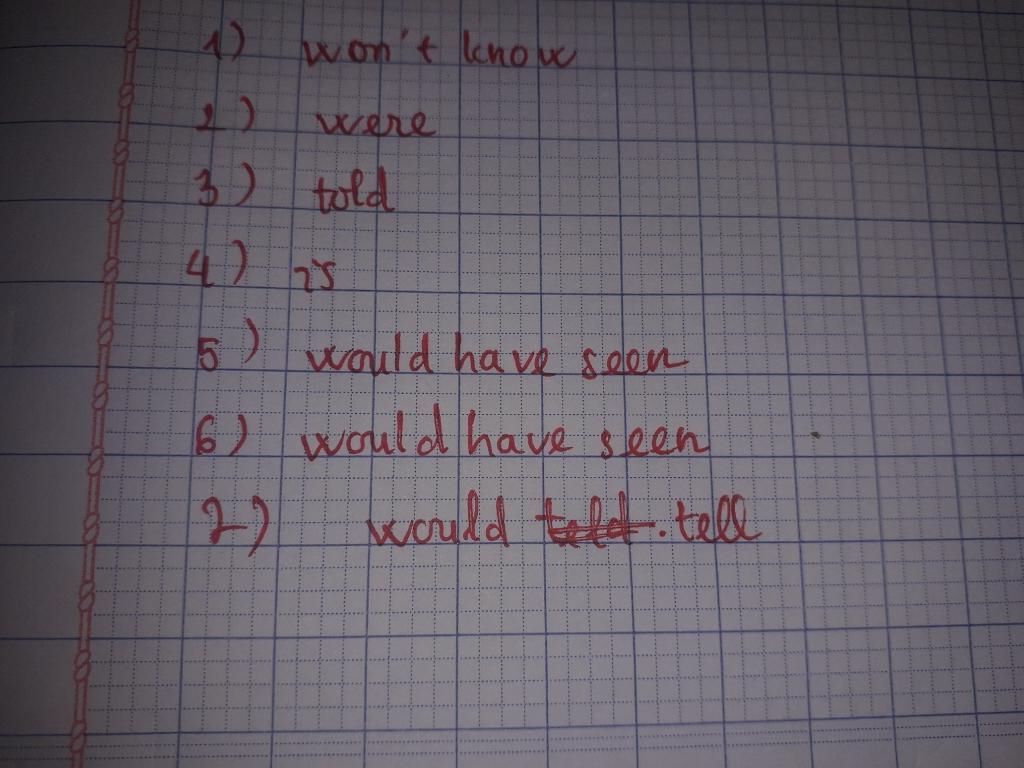 1) won't know
2) were
3) told
4) is
5) would have seen
6) would have seen
7) would told . tell